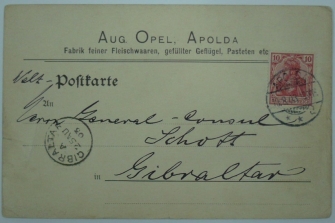 Aug. Opel, Apolda
Fabrik feiner Fleischwaaren, gefüllter Geflügel, Pasteten etc
Welt- Postkarte
10 10
An
Herrn General-Consul
Schott
in Gibraltar
GIBRALTAR
A